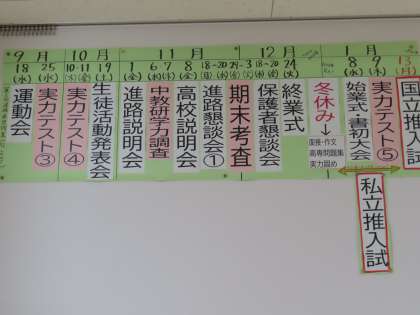 9月
18(水) 運動会
25(水) 実力テスト③
10月
10・11(木)(金) 実力テスト④
19(土) 生徒活動発表会
11月
1(金) 進路説明会
6(水) 中教研学力調査
7(木)
8(金) 高校説明会
18~20 進路懇談会①
期末考査
12月
18~20 保護者懇談会
24(火) 終業式
冬休み→
面接・作文
高専問題集
実力固め
1月
8(水) 始業式・書初大会
9(木) 実力テスト⑤
13 国立推入試
私立推入試